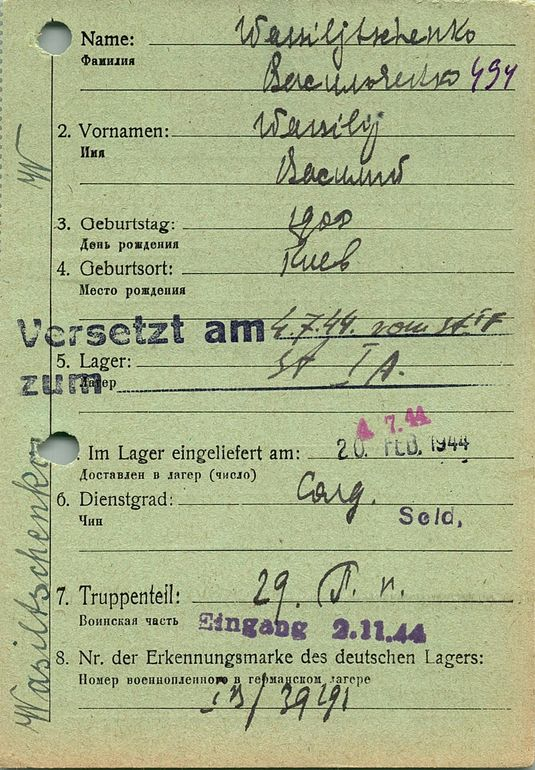 Name: Wassiljtschenko
Фамилия
Васильченко 494
2. Vornamen: Wassilij
Имя
Василий
3. Geburtstag: 1900
День рождения
4. Geburtsort: Киев
Место рождения
Versetzt am 4.7.44. vom St. IF
5. Lager: St IA.
zum
Лагер
4 7.44
Im Lager eingeliefert am: 20. FEB. 1944
Доставлен в лагер (число)
6. Dienstgrad: Солд.
Чин
Sold,
7. Truppenteil: 29. П. п.
Воинская часть
Eingang 2.11.44
8. Nr. der Erkennungsmarke des deutschen Lagers:
Номер военнопленного в германском лагере
W
Wasiltschenko